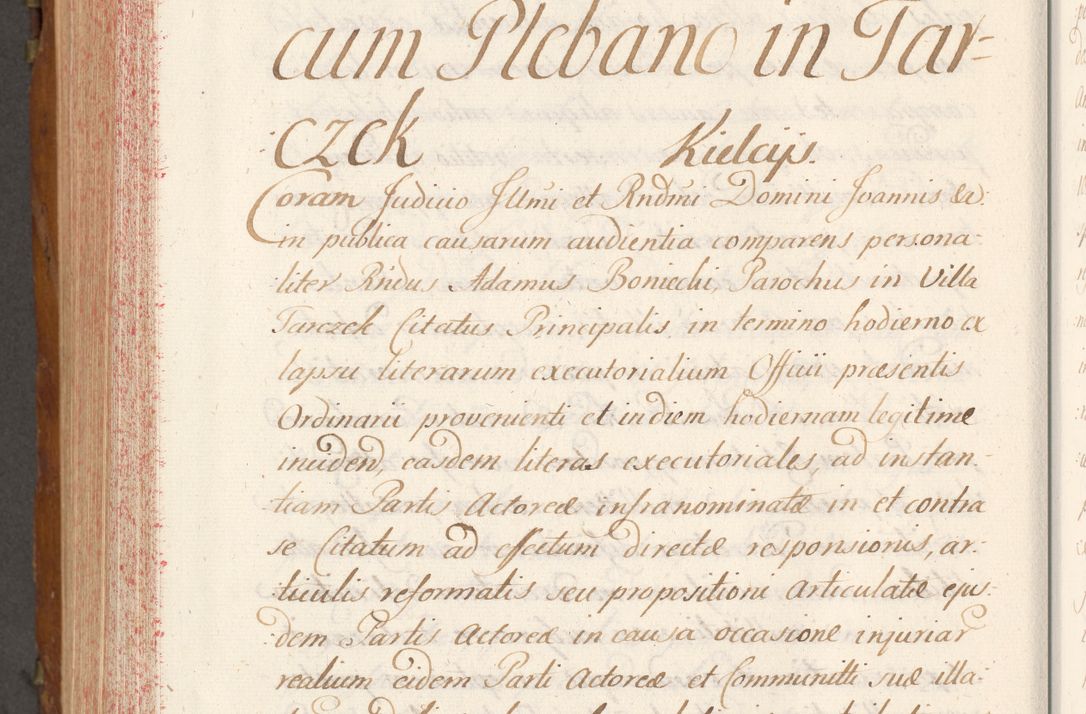 cum Plebano in Tar=
czek Kielcijs.
Coram Judicio Illmi et Rndmi Domini Joannis &a
in publica causarum audientia comparens persona-
liter Rndus Adamus Boniecki, Parochus in Villa
Tarczek Citatus Principalis in termino hodierno ex
lapsu literarum executorialium Officii præsentis
Ordinarii provenienti et in diem hodiernam legitime
inciden, easdem literas executoriales, ad instan-
tiam Partis Actoreæ infranominatæ in et contra
se Citatum ad effectum directæ responsionis, ar-
ticulis reformatis seu propositioni articulatæ ejus-
dem Partis Actoreæ in causa occasione injuriar
realium eidem Parti Actoreæ et Communitti suæ illa-